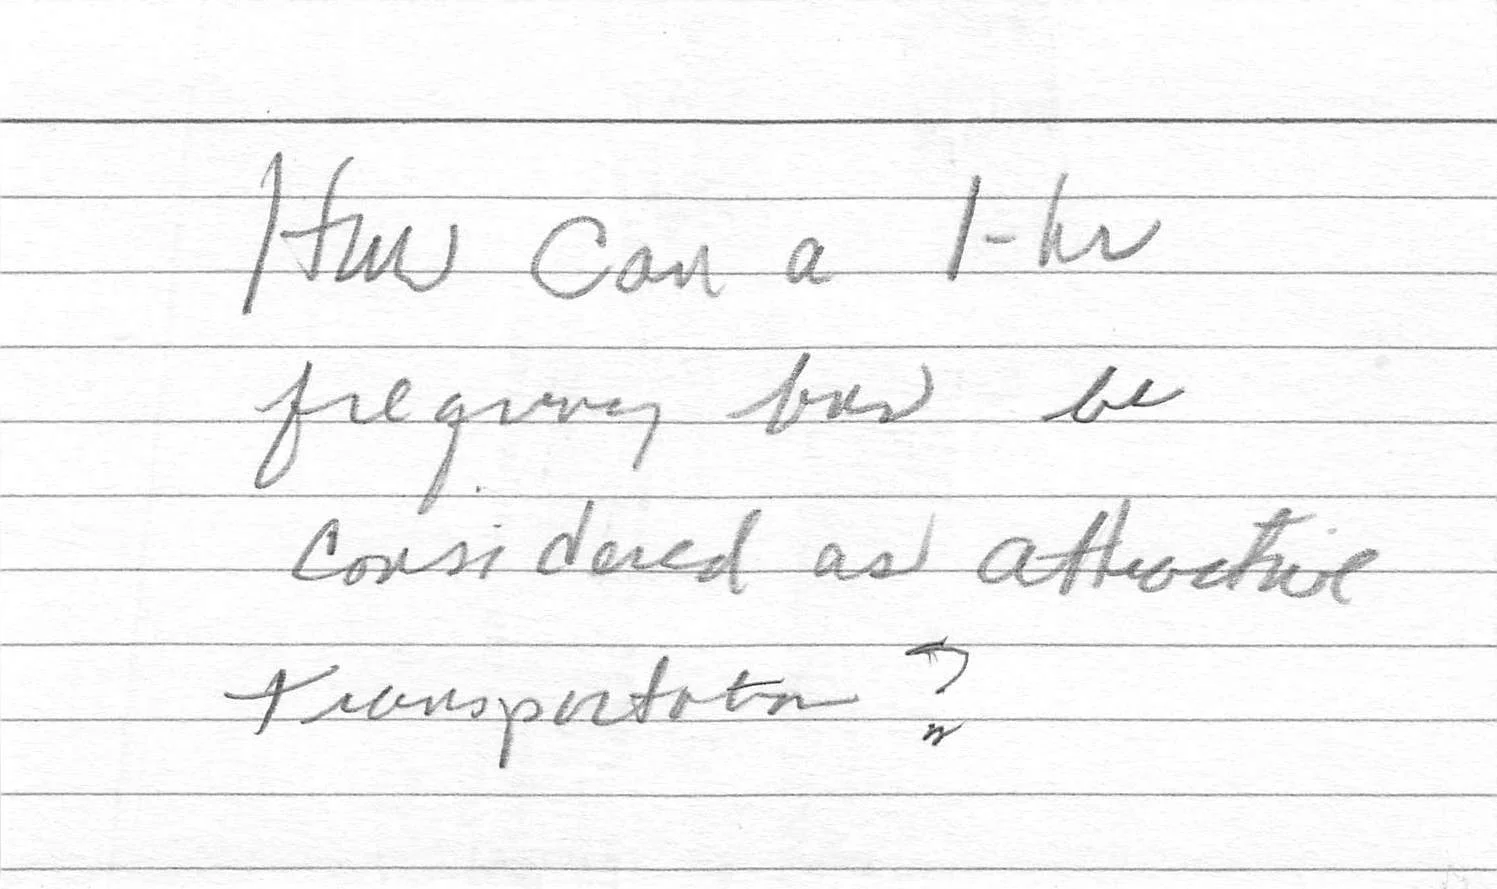 How can a 1-hr
frequency bus be
considered as attractive
transportation?